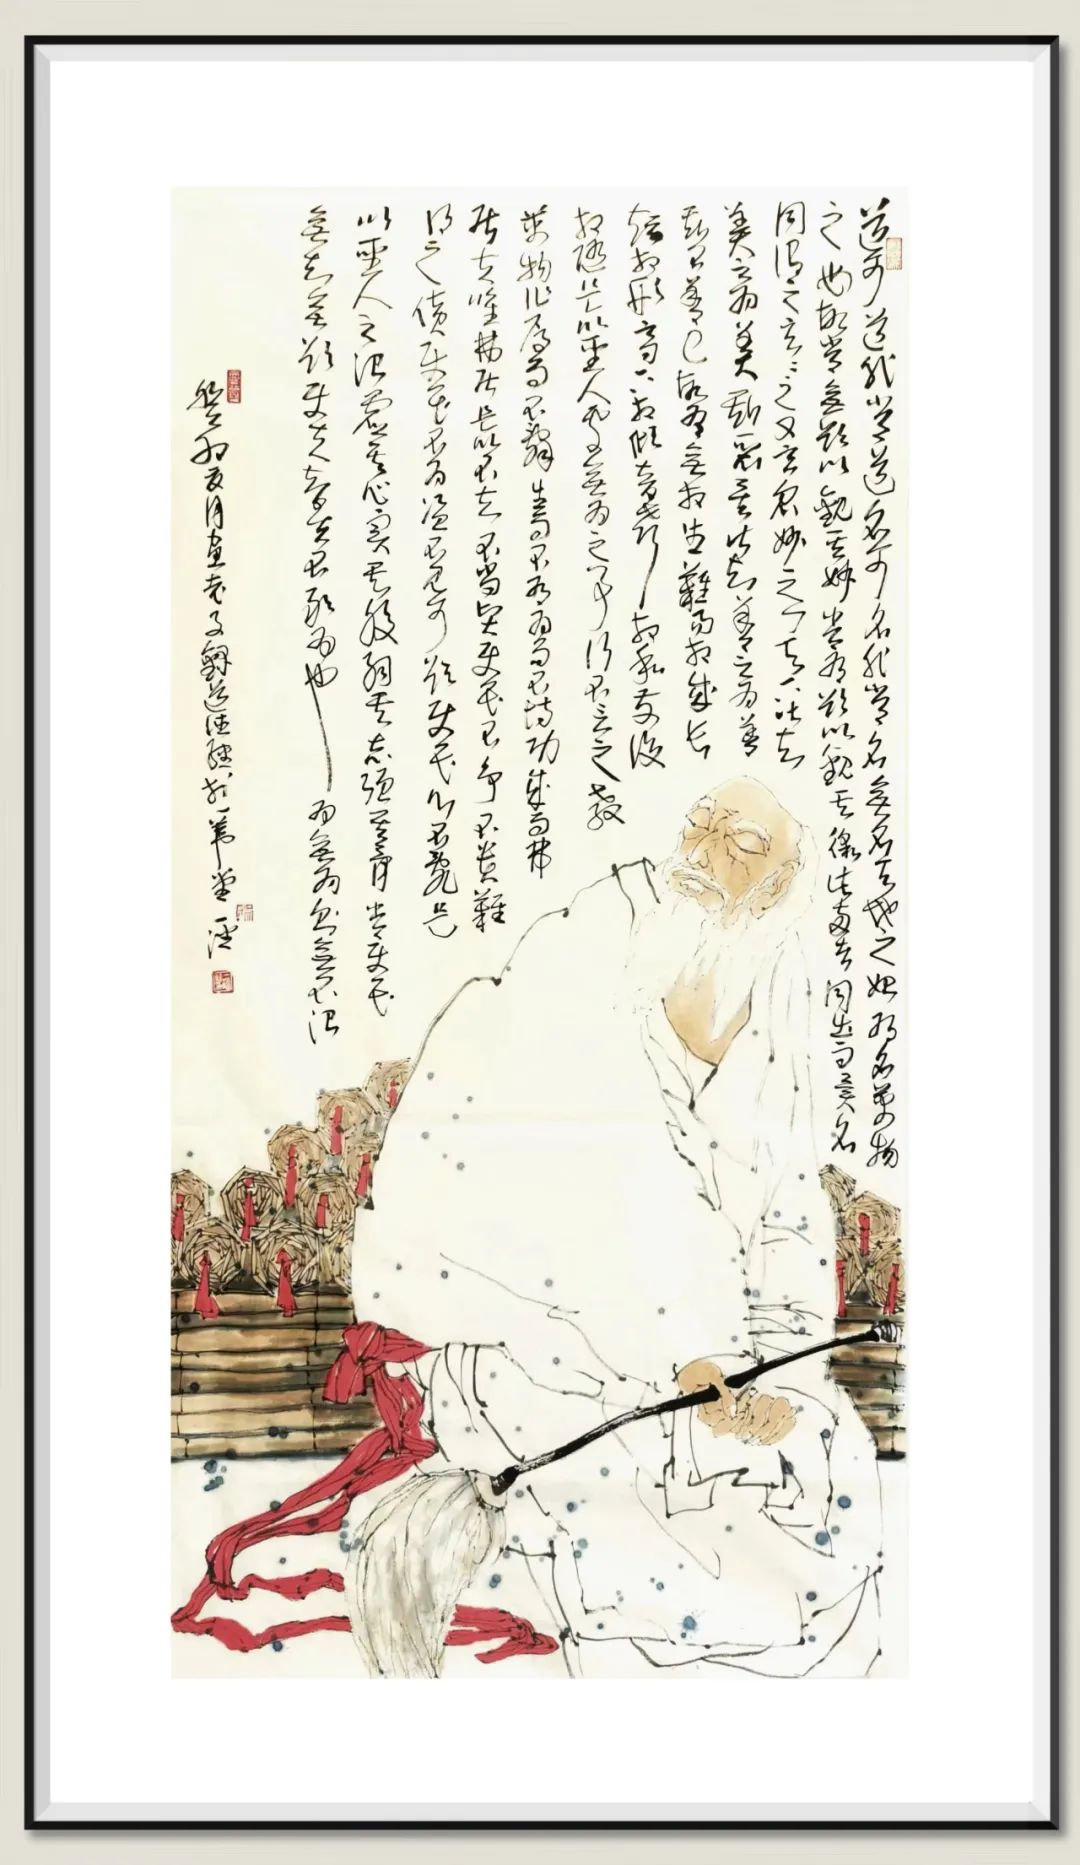 道可道非常道名可名非常名無名天地之始有名萬物
之母故常無欲以觀其妙常有欲以觀其徼此兩者同出而異名
同謂之玄〻之又玄眾妙之門天下皆知
美之為美斯惡皆知善之為善
斯不善已故有無相生難易相成長
短相形高下相傾音聲相和前後
相隨是以聖人處無為之事行不言之教
萬物作焉而不辭生而不有為而不恃功成而弗
居夫唯弗居是以不去不尚賢使民不爭不貴難
得之貨使民不為盜不見可欲使民心不亂是
以聖人之治虛其心實其腹弱其志強其骨常使民
無知無欲使夫智者不敢為也為無為則無不治
癸卯夏月畫老子解道德經於一葦堂